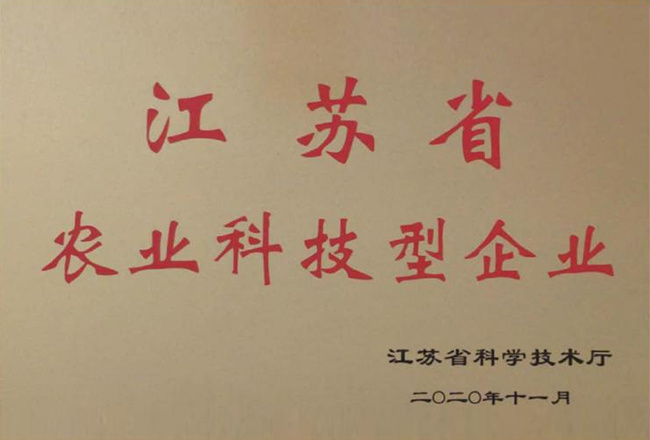 江苏省
农业科技型企业
江苏省科学技术厅
二〇二〇年十一月